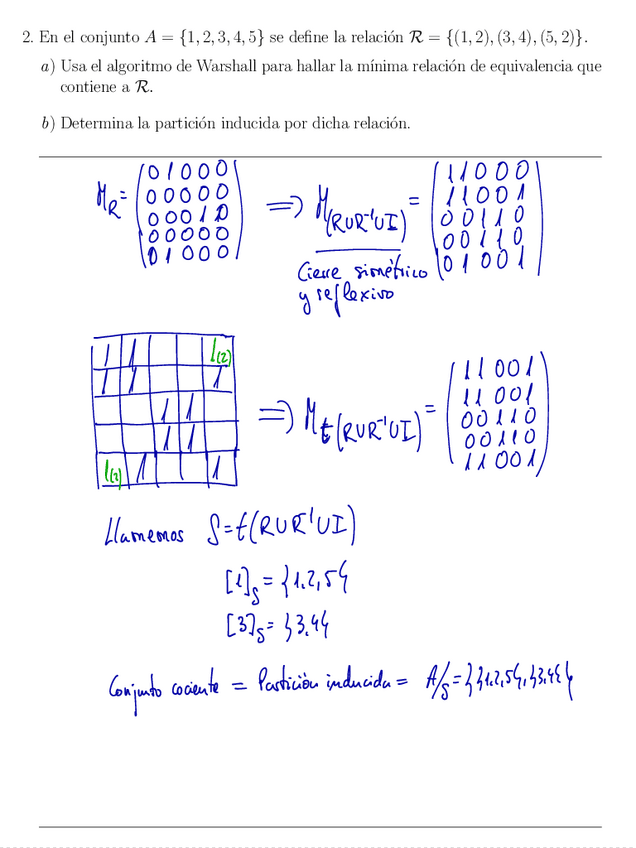 2. En el conjunto A = {1, 2, 3, 4, 5} se define la relación R = {(1, 2), (3, 4), (5, 2)}.
a) Usa el algoritmo de Warshall para hallar la mínima relación de equivalencia que
contiene a R.
b) Determina la partición inducida por dicha relación.
0 1 0 0 0 1 1 0 0 0
0 0 0 0 0 1 1 0 0 1
M_R = 0 0 0 1 0 ⟹ M_(R∪R⁻¹∪I) = 0 0 1 1 0
0 0 0 0 0 0 0 1 1 0
0 1 0 0 0 0 1 0 0 1
Cierre simétrico
y reflexivo
1 1 1(2)
1 1 1 1 1 0 0 1
1 1 1 1 0 0 1
1 1 ⟹ M_t(R∪R⁻¹∪I) = 0 0 1 1 0
1(2) 1 1 0 0 1 1 0
1 1 0 0 1
Llamemos S = t(R∪R⁻¹∪I)
[1]_S = {1,2,5}
[3]_S = {3,4}
Conjunto cociente = Partición inducida = A/S = {{1,2,5},{3,4}}